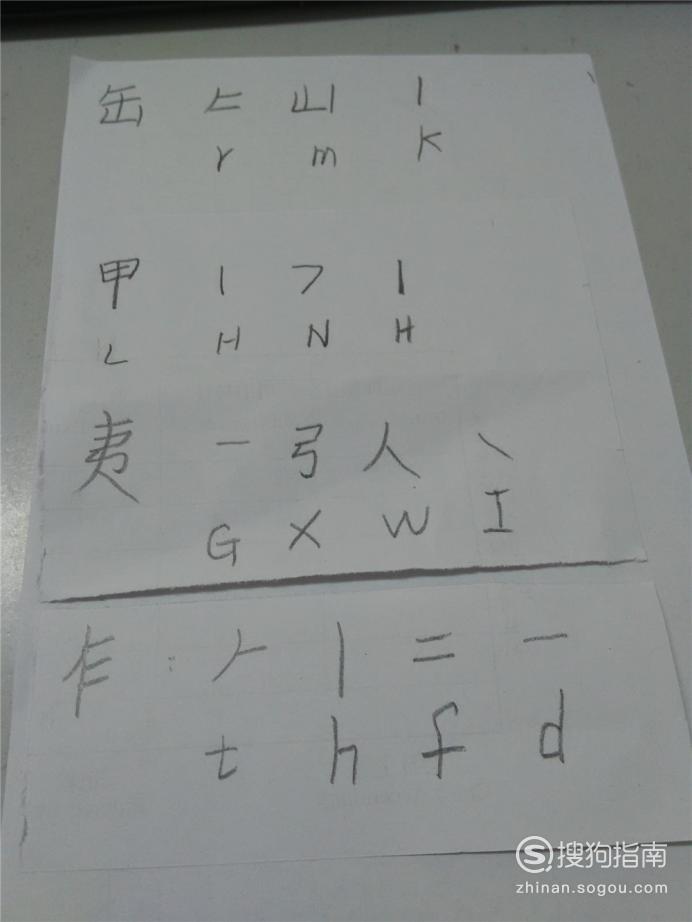 缶 𠂉 山 丨
r m k
甲 丨 フ 丨
L H N H
夷 一 弓 人 丶
G X W I
乍 : 𠂉 丨 二 一
t h f d
搜狗指南
zhinan.sogou.com